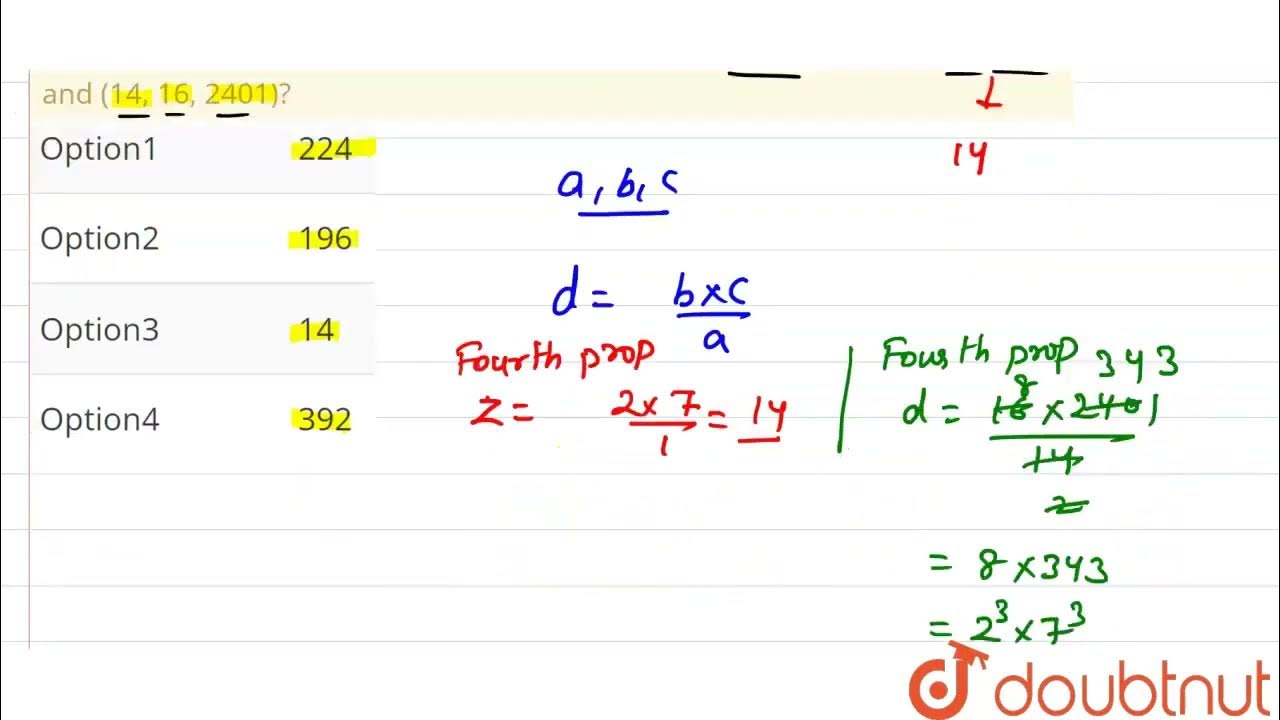 and (14, 16, 2401)?
Option1 224
Option2 196
Option3 14
Option4 392
14
a, b, c
d = b×c
a
Fourth prop
z = 2×7 = 14
1
Fourth prop 343
8
d = 16 × 2401
14
2
= 8 × 343
= 2³ × 7³
doubtnut